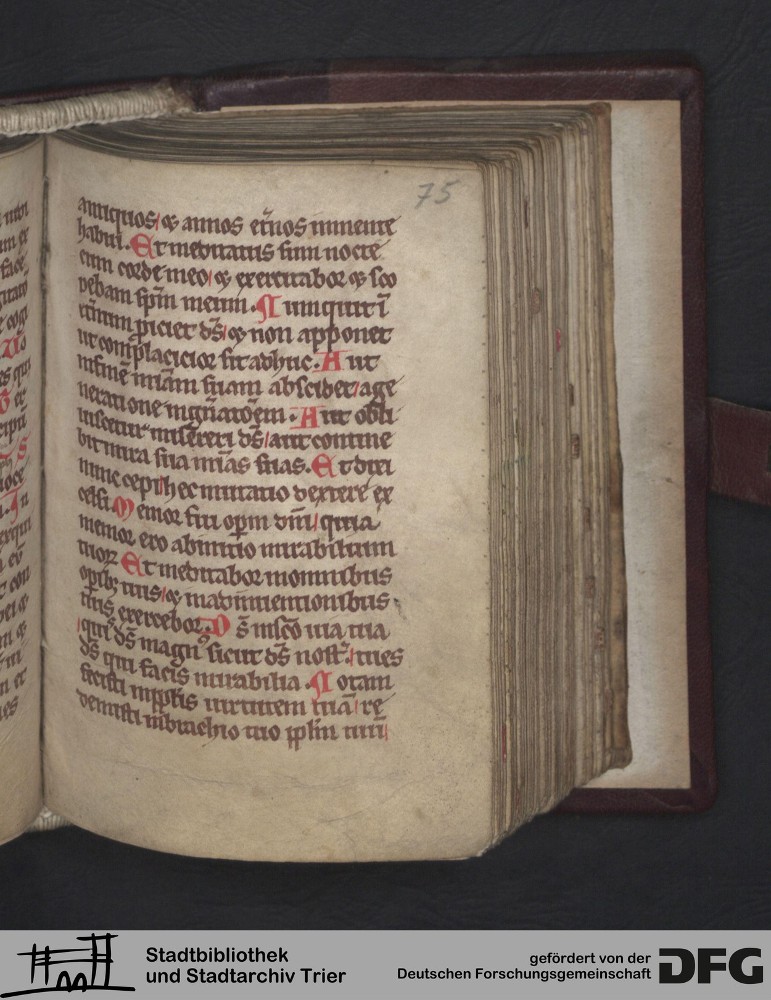 75
antiquos / ⁊ annos et̄nos in mente
habui. Et meditatus sum nocte
cum corde meo / ⁊ exercitabor ⁊ sco
pebam sp̄m meum. Numquit ī
et̄num ꝓiciet ds̄ / ⁊ non apponet
ut complacicior sit adhuc. Aut
in finē mīam suam abscidet / age
neratione in gn̄atōem. Aut obli
uiscetur misereri ds̄ / aut contine
bit in ira sua mīas suas. Et dixi
nunc cepi / hec mutatio dextere ex
celsi. Memor fui opm̄ dn̄i / quia
memor ero ab initio mirabilium
tuoꝝ Et meditabor in omnibus
opibꝫ tuis / ⁊ in adinuentionibus
tuis exercebor. Ds̄ in sc̄o uia tua
/ qui᷒ ds̄ magn᷒ sicut ds̄ nost̄. / tu es
ds̄ qui facis mirabilia. Notam
fecisti in pp̄lis uirtutem tuā / re
demisti in brachio tuo pp̄lm tuū /
Stadtbibliothek
und Stadtarchiv Trier
gefördert von der
Deutschen Forschungsgemeinschaft
DFG